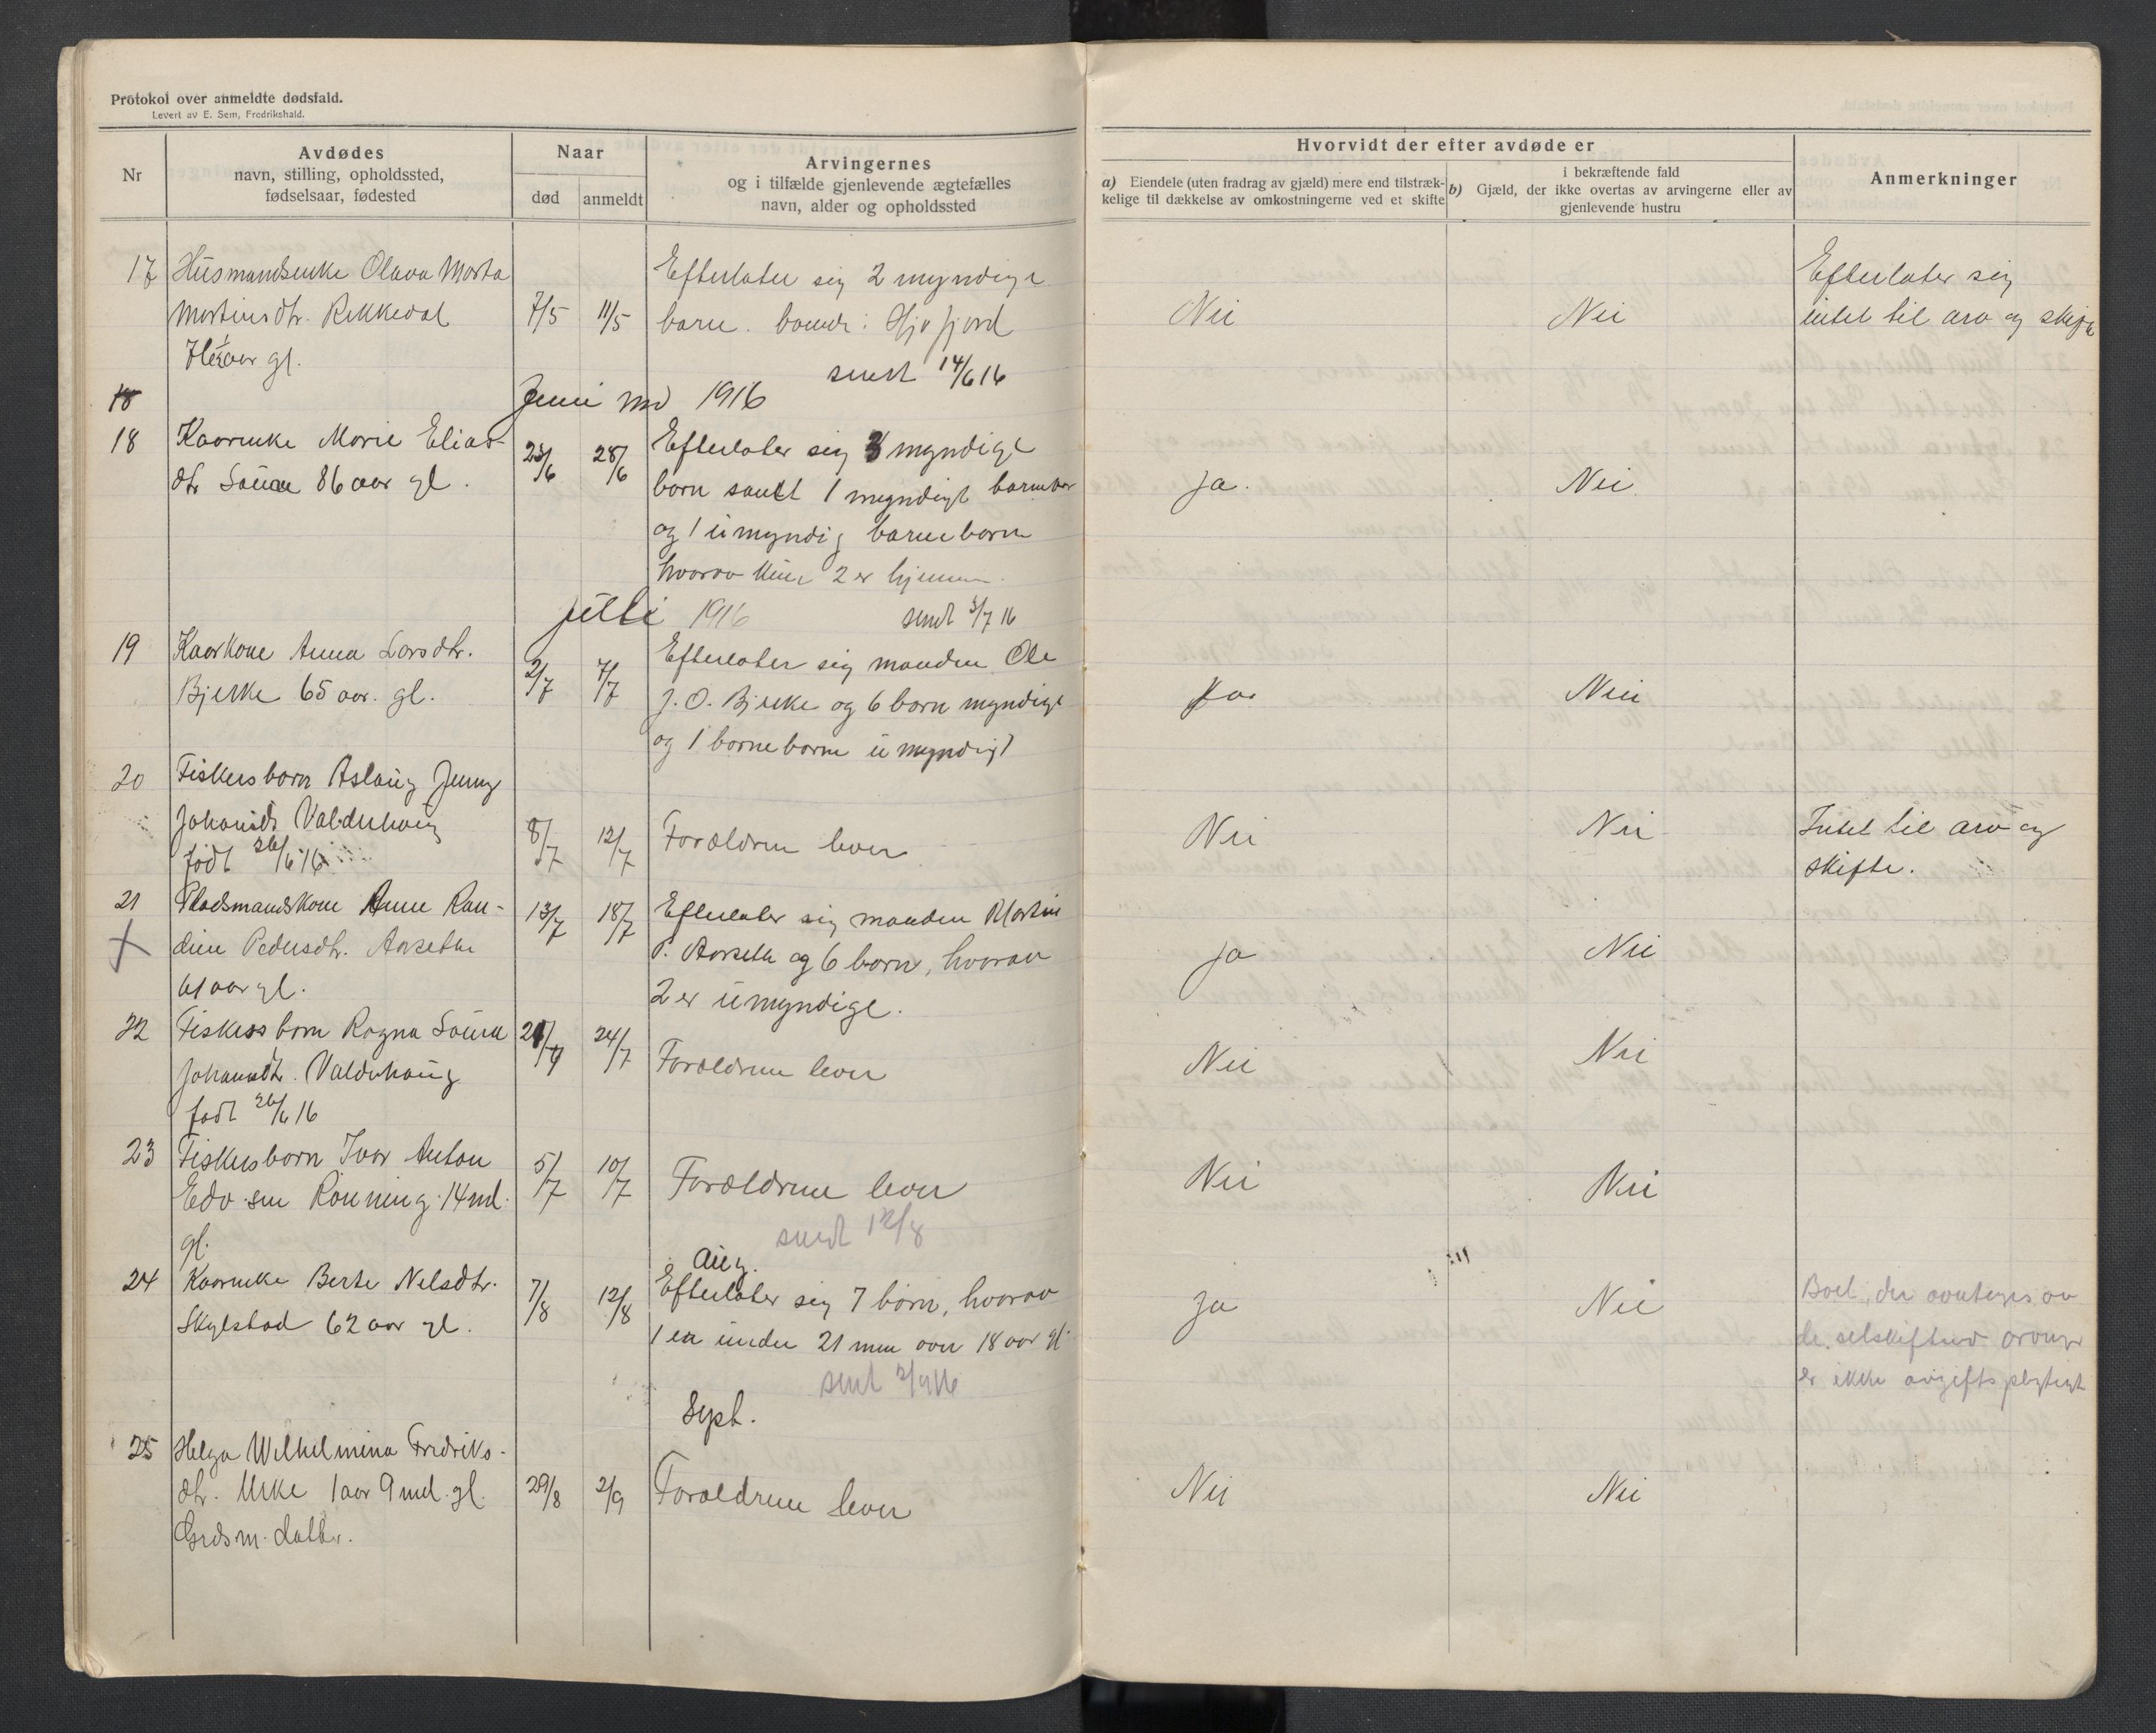 Protokol over anmeldte dødsfald.
Levert av E. Sem, Fredrikshald.
Nr
Avdødes
navn, stilling, opholdssted,
fødselsaar, fødested
Naar
død
anmeldt
Arvingernes
og i tilfælde gjenlevende ægtefælles
navn, alder og opholdssted
Hvorvidt der efter avdøde er
a) Eiendele (uten fradrag av gjæld) mere end tilstræk-
kelige til dækkelse av omkostningerne ved et skifte
i bekræftende fald
b) Gjæld, der ikke overtas av arvingerne eller av
gjenlevende hustru
Anmerkninger
17 Husmandsenke Olava Marta
Martinsdtr. Rekkedal
aar gl.
7/5 11/5
Efterlater sig 2 myndige
barn. i Hjørfjord
sendt 14/6 16
Nei
Nei
Efterlater sig
intet til arv og skifte
18
Juni md 1916
18 Kaarenke Marie Elias-
dtr Saure 86 aar gl.
23/6 28/6
Efterlater sig 3 myndige
born samt 1 myndigt barnebar
og 1 umyndig barnebarn
hvorav kun 2 er hjemme.
Ja.
Nei
Julli 1916
sendt 3/7 16
19 Kaarkone Anna Larsdtr.
Bjerke 65 aar. gl.
2/7 7/7
Efterlater sig manden Ole
J. O. Bjerke og 6 born myndige
og 1 barnebarn umyndigt
Ja
Nei
20 Fiskersbarn Aslaug Jenny
Johansdt Valderhaug
født 26/6 16
8/7 12/7
Forældren lever
Nei
Nei
Intet til arv og
skifte.
21 Pladsmandskone Anne Ran-
dine Pedersdtr. Aarseth
61 aar gl.
13/7 18/7
Efterlater sig manden Martin
P. Aarseth og 6 born, hvorav
2 er umyndige.
Ja
Nei
22 Fiskers barn Ragna Saura
Johansdtr. Valderhaug
født 26/6 16
21/7 24/7
Forældrene lever
Nei
Nei
23 Fiskersbarn Ivar Anton
Edv. sen Rønning 14 md.
gl.
5/7 10/7
Forældrene lever
Nei
Nei
sendt 12/8
Aug.
24 Kaarenke Berte Nelsdtr.
Skylstad 62 aar gl.
7/8 12/8
Efterlater sig 7 born, hvorav
1 er under 21 men over 18 aar gl.
Ja
Nei
Boet, der overtages av
de selskiftende arvinger
er ikke avgiftspligtigt
sendt 2/9 16
Sept.
25 Helga Wilhelmina Fredriks-
dtr. Urke 1 aar 9 md. gl.
Grdsm. datter.
29/8 2/9
Forældrene lever
Nei
Nei